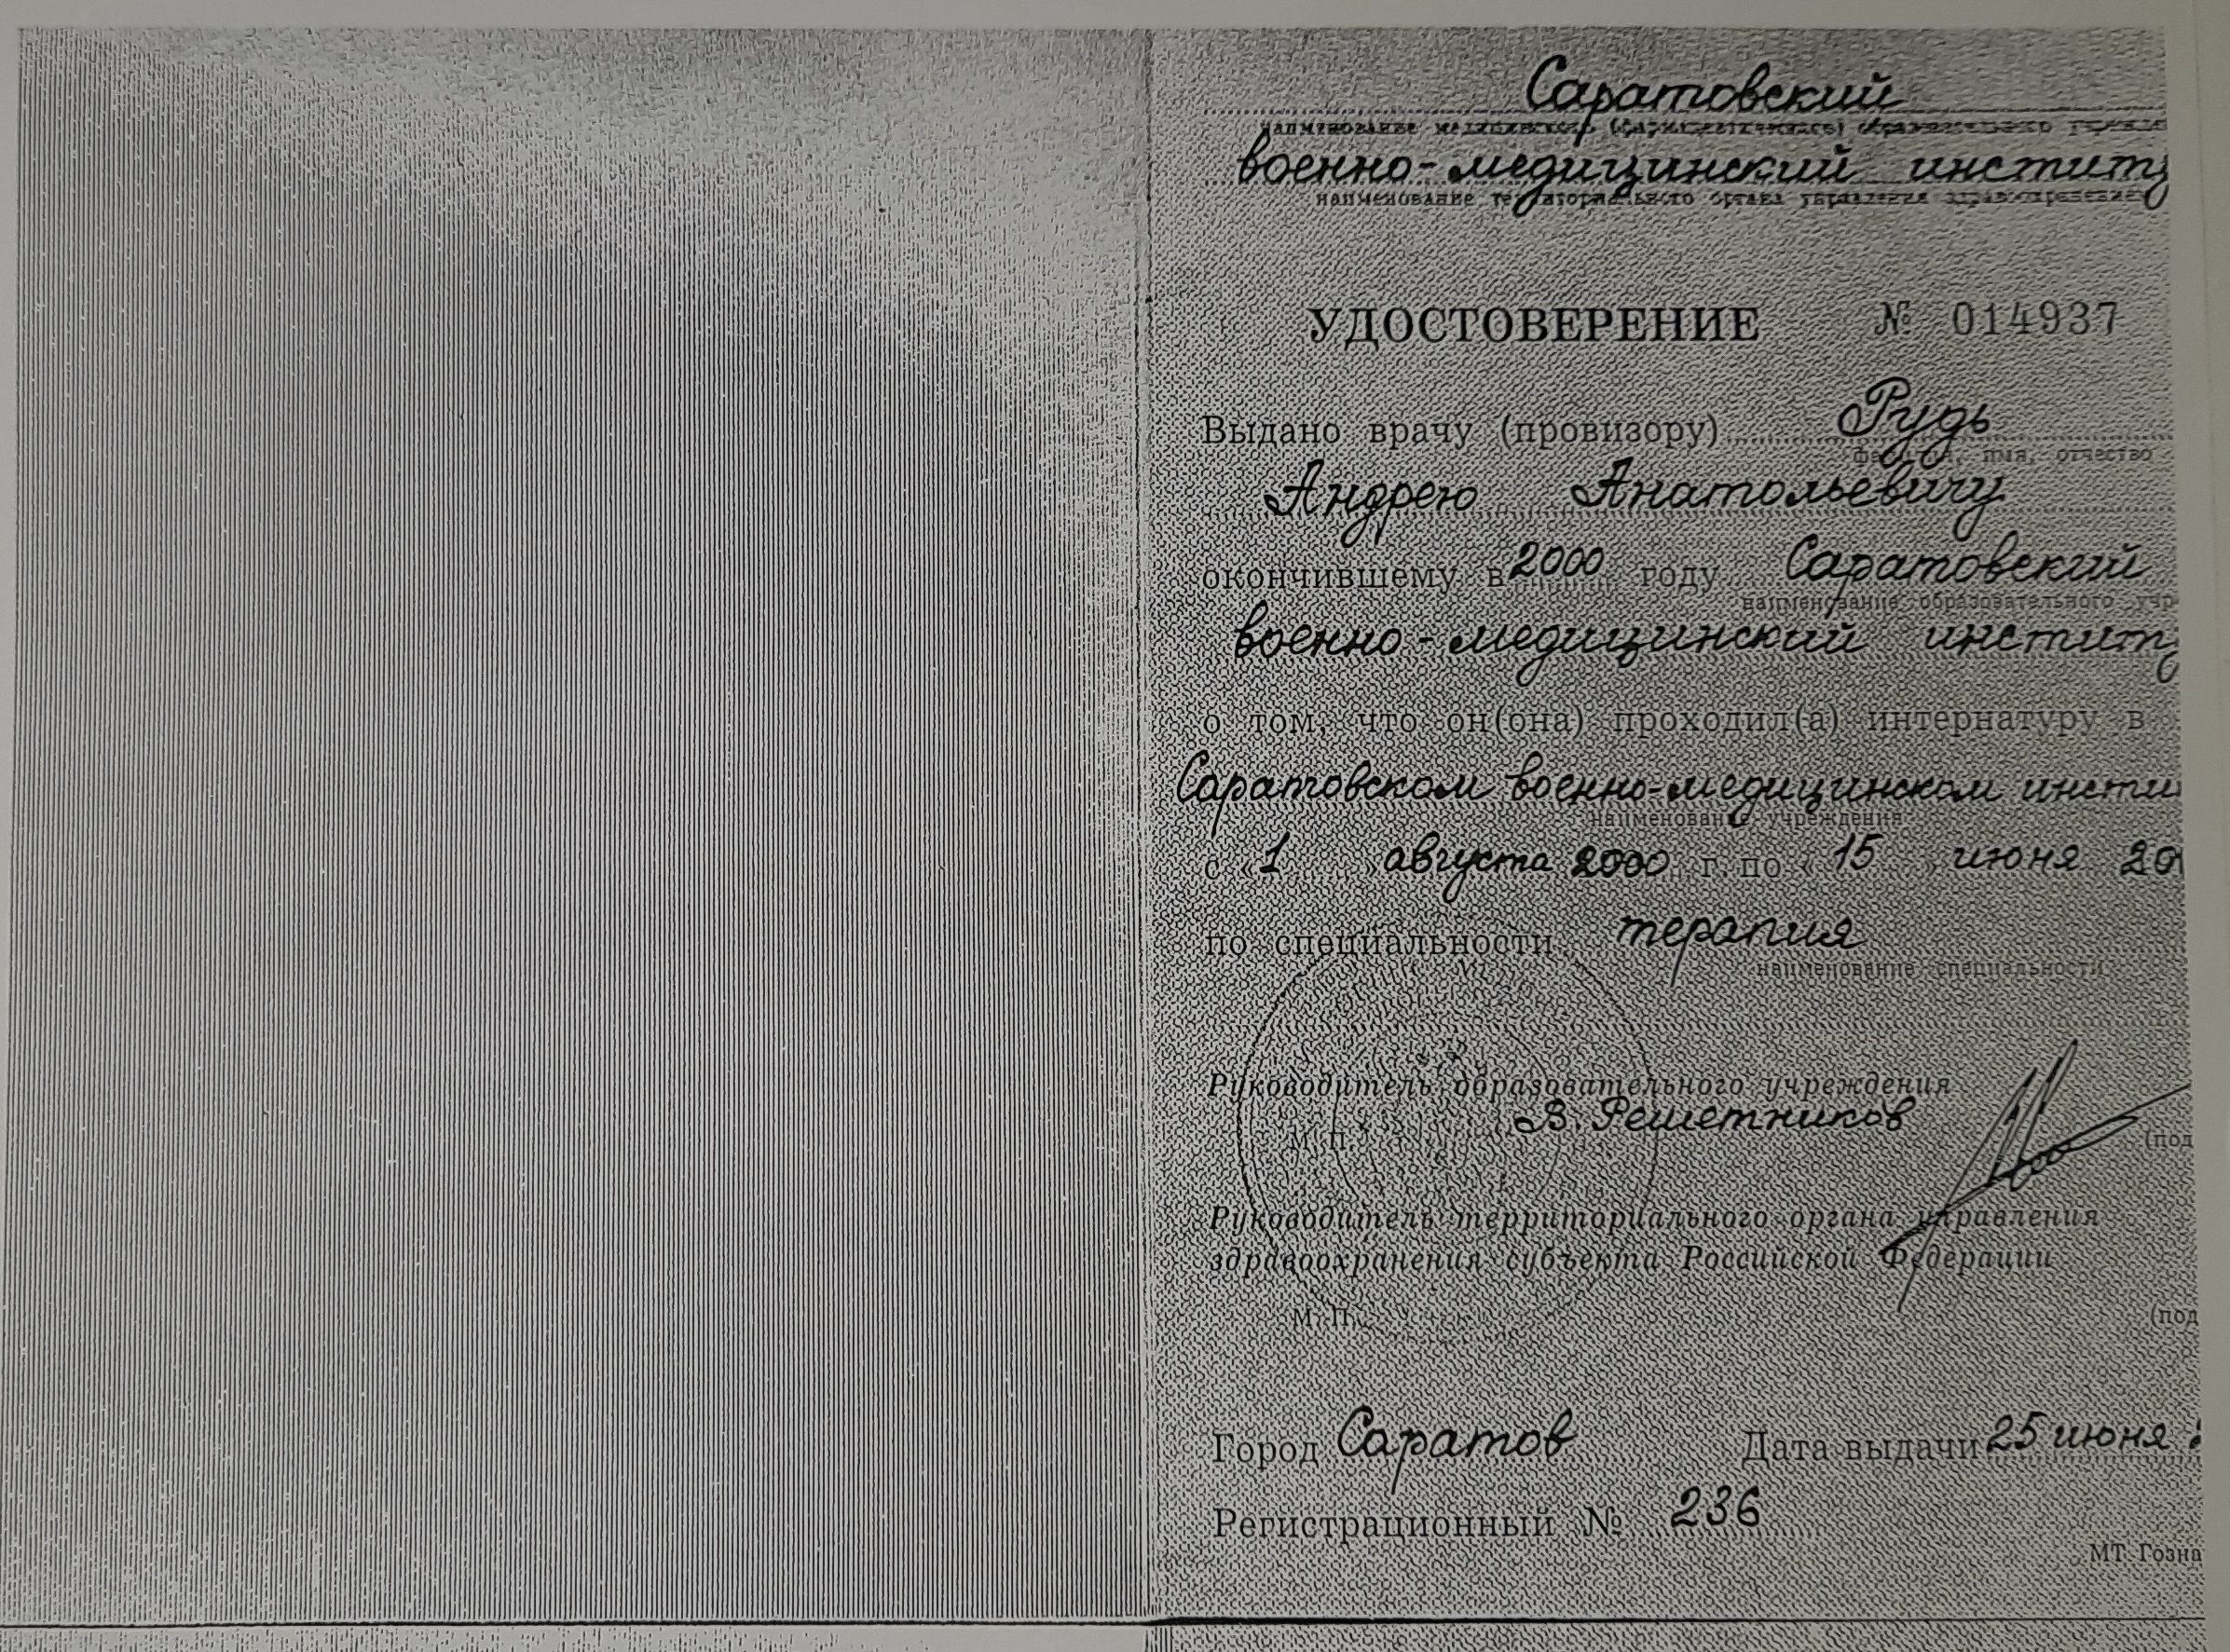 Саратовский
наименование медицинского (фармацевтического) образовательного
военно-медицинский институ
наименование территориального органа управления здравоохранением
УДОСТОВЕРЕНИЕ № 014937
Выдано врачу (провизору) Рудь
фамилия, имя, отчество
Андрею Анатольевичу
окончившему в 2000 году Саратовский
наименование образовательного учр
военно-медицинский институ
о том, что он(она) проходил(а) интернатуру в
Саратовском военно-медицинском инсти
наименование учреждения
с «1» августа 2000 г. по «15» июня 20
по специальности терапия
наименование специальности
Руководитель образовательного учреждения
В. Решетников
М. П. (под
Руководитель территориального органа управления
здравоохранения субъекта Российской Федерации
М. П. (под
Город Саратов Дата выдачи 25 июня
Регистрационный № 236
МТ Гозна